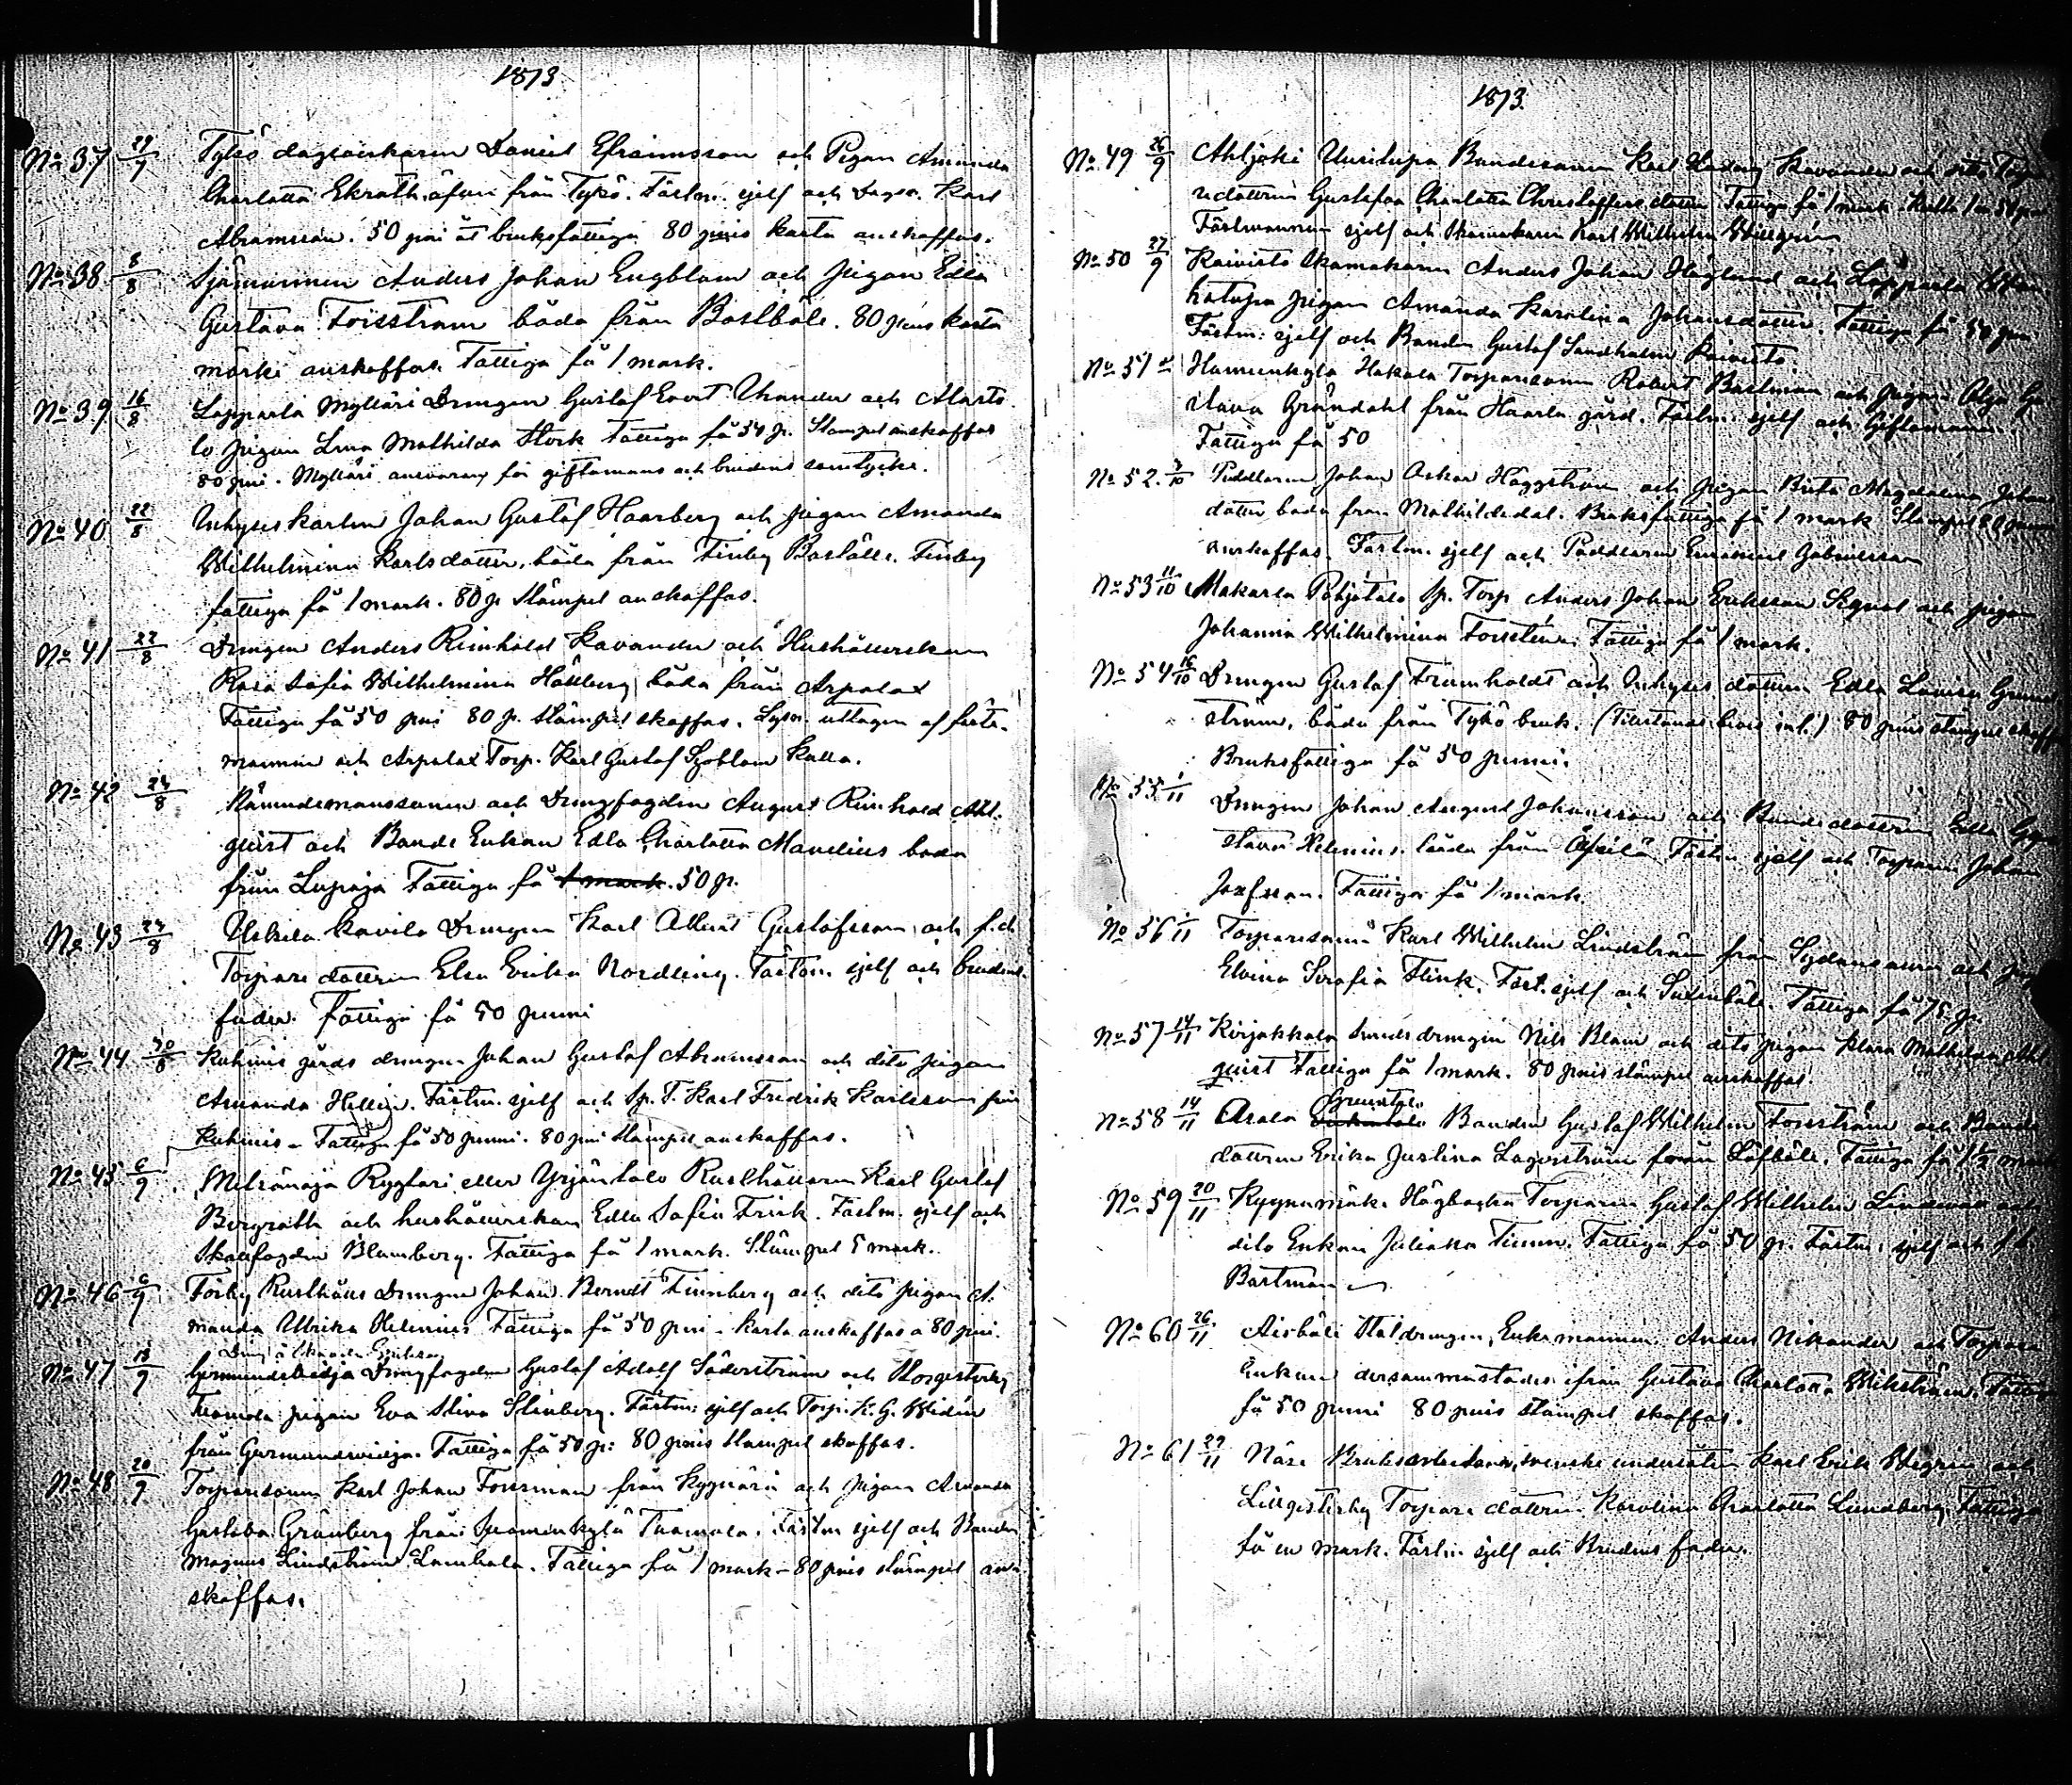 1873
No 37 29/7 Tykö dagsverkaren Daniel Efraimsson och Pigan Amanda
Charlotta Ekroth, äfven från Tykö. Fästm. sjelf och Dagsv. Karl
Abramsson. 50 pni åt bruksfattiga 80 pnis karta anskaffas.
No 38 8/8 Sjömannen Anders Johan Engblom och pigan Edla
Gustava Forsström båda från Bastböle. 80 pnis karta
märke anskaffas. Fattiga få 1 mark.
No 39 16/8 Lapparla Mylläri Drengen Gustaf Evert och
lo pigan Lena Mathilda Stork Fattiga få 50 p. Stämpel anskaffas
80 pni. Mylläri ansvarar för giftomans och brudens samtycke.
No 40 22/8 Inhyses karlen Johan Gustaf Haarberg och pigan Amanda
Wilhelmina Karlsdotter, båda från Finby Bastböle. Finby
fattiga få 1 mark. 80 p. Stämpel anskaffas.
No 41 22/8 Drengen Anders Reinhold Kavander och Hushållerskan
Rosa Sofia Wilhelmina Hällberg båda från Arpalax
Fattiga få 50 pni 80 p. Stämpel skaffas. Lysn. uttagen af fäst-
mannen och Arpalax Torp. Karl Gustaf Sjöblom Kalla.
No 42 24/8 Nämndemanssonen och Drengfogden August Reinhold Ahl-
quist och Bonde Enkan Edla Charlotta Mandelius båda
från Lupaja Fattiga få 1 mark. 50 p.
No 43 24/8 Uskela Kavila Drengen Karl Albert Gustafsson och f.d.
Torpare dottren Elsa Erika Nordling. Fästm. sjelf och brudens
fader. Fattiga få 50 penni
No 44 30/8 Kuhmis gårds drengen Johan Gustaf Abramsson och dito pigan
Amanda Hellen. Fästm. sjelf och Sp. T. Karl Fredrik Karlsson från
Kuhmis. Fattiga få 50 penni. 80 pni Stämpel anskaffas.
No 45 6/9 Melsänoja Rygtari eller Yrjäntalo Rusthållaren Karl Gustaf
Bergroth och hushållerskan Edla Sofia Frisk. Fästm. sjelf och
Skallfogden Blomberg. Fattiga få 1 mark. Stämpel 5 mark.
No 46 6/9 Förby Rusthålls Drengen Johan Berndt Finnberg och dito pigan A-
manda Ulrika Helenius Fattiga få 50 pni. Karta anskaffas a 80 pni.
No 47 13/9 Germundsvedja Drengfogden Gustaf Adolf Söderström och Storgesterby
Tuomola pigan Eva Stina Stenberg. Fästm. sjelf och Torp. K. G. Widén
från Germundsvedja. Fattiga få 50 p: 80 pnis Stämpel skaffas.
No 48 20/9 Torparesonen Karl Johan Forsman från och pigan Amanda
Gustava Grönberg från Suomenkylä Tuomola. Fästm sjelf och Bonden
Magnus Lindström Lambala. Fattiga få 1 mark - 80 pnis stämpel an-
skaffas.
1873.
No 49 26/9 Ahljoki Uusitupa Bondesonen Karl Kavander och dito Torpa-
redottren Gustafva Charlotta Christoffersdotter Fattiga få 1 mark.
Fästmannen sjelf och Skomakaren Karl Wilhelm Willgrén
No 50 27/9 Koivisto Skomakaren Anders Johan Höglund och Lapparla
pigan Amanda Karolina Johansdotter. Fattiga få 50 pni
Fästm: sjelf och Bonden Gustaf Sandholm Koivisto
No 51 Hameenkylä Hakala Torparesonen Robert Bastman och pigan Olga Gu-
stava Gröndahl från Haarla gård. Fästm. sjelf och Giftomann.
Fattiga få 50
No 52 /10 Puddlaren Johan Oskar Häggström och pigan Brita Magdalena Johans
dotter båda från Mathildedal. Bruksfattiga få 1 mark. Stämpel 80 penni
anskaffas. Fästm. sjelf och Puddlaren Emanuel Gabrielsson
No 53 11/10 Makarla Pohjotalo Sp. Torp. Anders Johan Eriksson Segval och pigan
Johanna Wilhelmina Forsstén. Fattiga få 1 mark.
No 54 16/10 Drengen Gustaf Frumholdt och Inhyses dottren Edla Lovisa
ström, båda från Tykö bruk. 80 pnis stämpel skaff
Bruksfattiga få 50 penni.
No 55 1/11 Drengen Johan August Johansson och Bondedottren Edla Gu-
stava Helenius båda från Fästm. sjelf och Torparen Johan
Josefsson. Fattiga få 1 mark.
No 56 /11 Torparesonen Karl Wilhelm Lindström från och pigan
Elvina Serafia Flink. Fäst. sjelf och Fattiga få 75 p.
No 57 14/11 Kirjakkala Sunds drengen Nils Blom och dito pigan Klara Mathilda Ahl-
quist Fattiga få 1 mark. 80 pnis stämpel anskaffas.
No 58 14/11 Asala Bonden Gustaf Wilhelm Forsström och Bonde
dottren Erika Justina Lagerström från Löfböle. Fattiga få 1½ mark
No 59 20/11 Kyynämäki Högbacka Torparen Gustaf Wilhelm Lindevall och
dito Enkan Juliana Timm. Fattiga få 50 p. Fästm: sjelf och
Bastman
No 60 26/11 Aisböle Staldrengen, Enkemannen Anders Nikander och Torpare
Enkan dersammastädes ifrån Gustava Charlotta Wikström. Fattiga
få 50 penni 80 pnis stämpel skaffas.
No 61 29/11 Näse Bruksarbetaren, svenske undersåten Karl Erik och
Lillgesterby Torpare dottren Karolina Charlotta Lundberg. Fattiga
få en mark. Fästm. sjelf och Brudens fader.